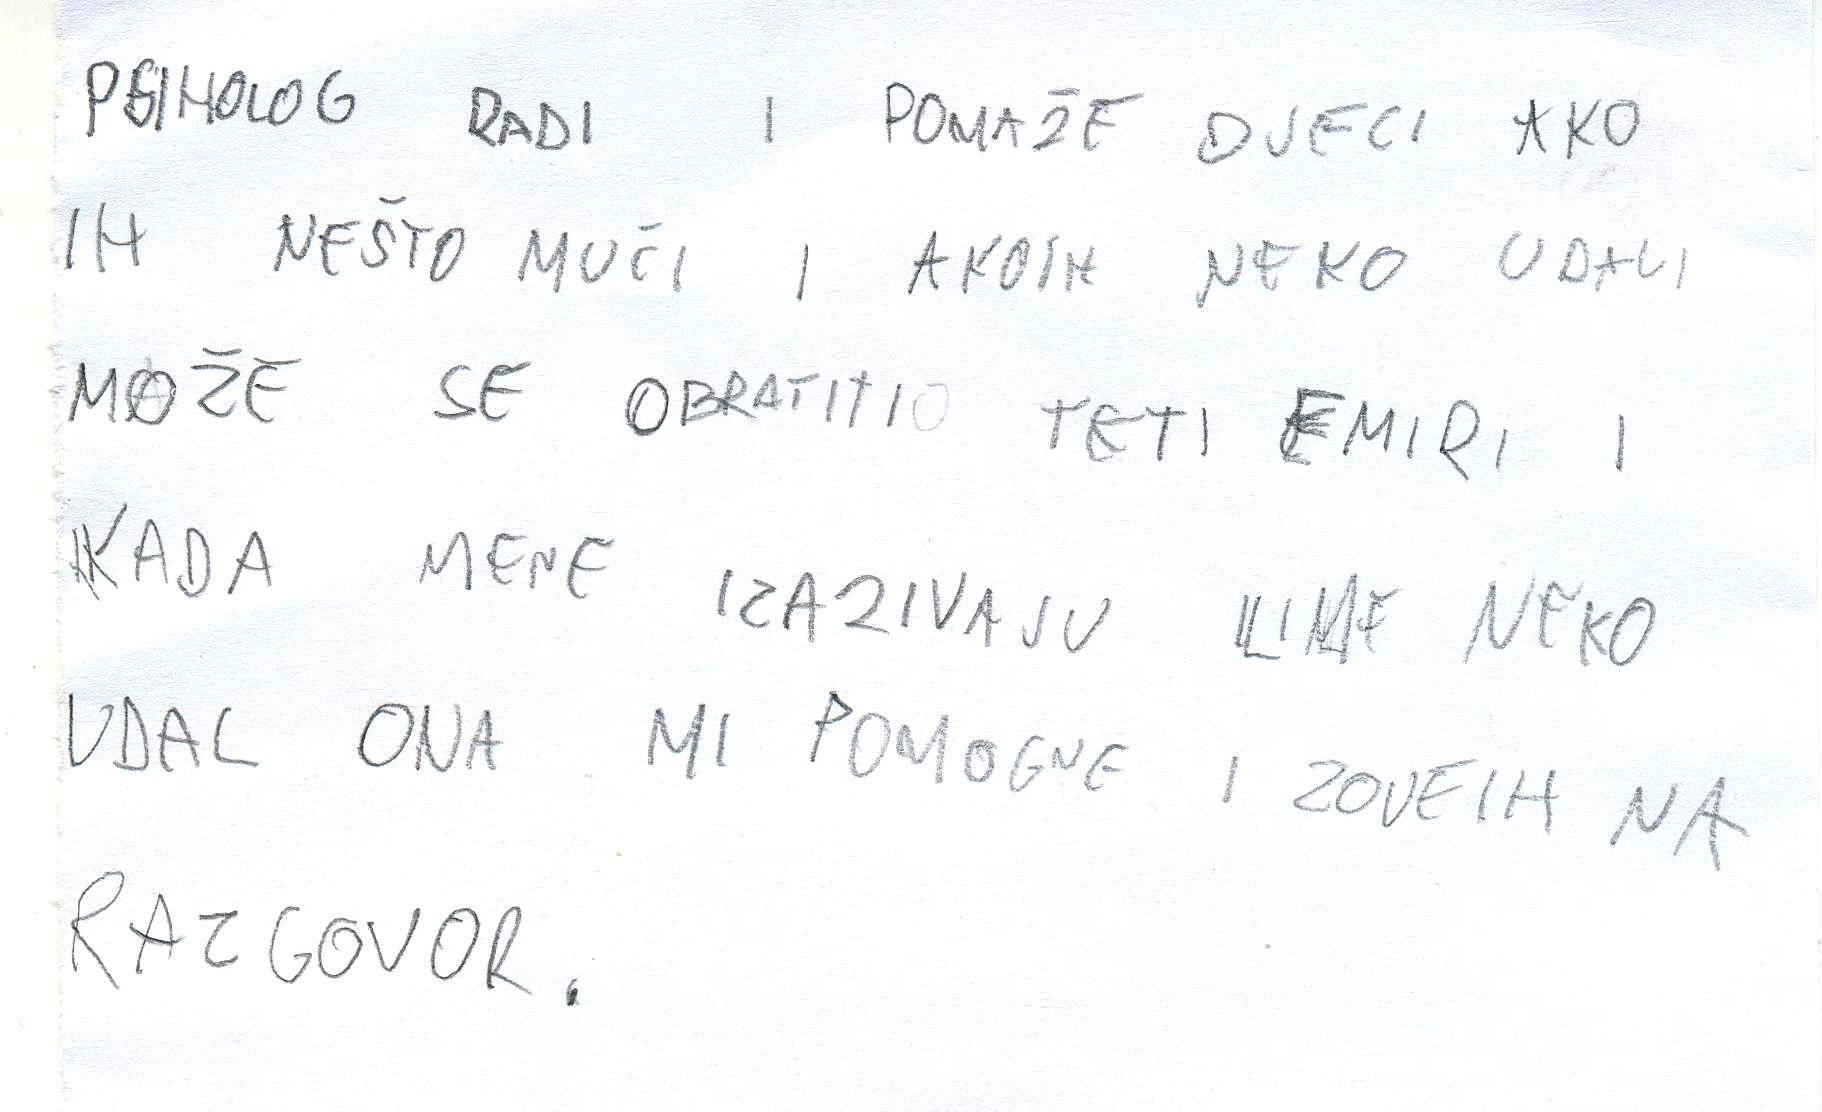 PSIHOLOG RADI I POMAŽE DJECI AKO
IH NEŠTO MUČI I AKOIH NEKO UDALI
MOŽE SE OBRATITIO TETI EMIRI I
KADA MENE IZAZIVAJU ILIME NEKO
UDAL ONA MI POMOGNE I ZOVEIH NA
RAZGOVOR.